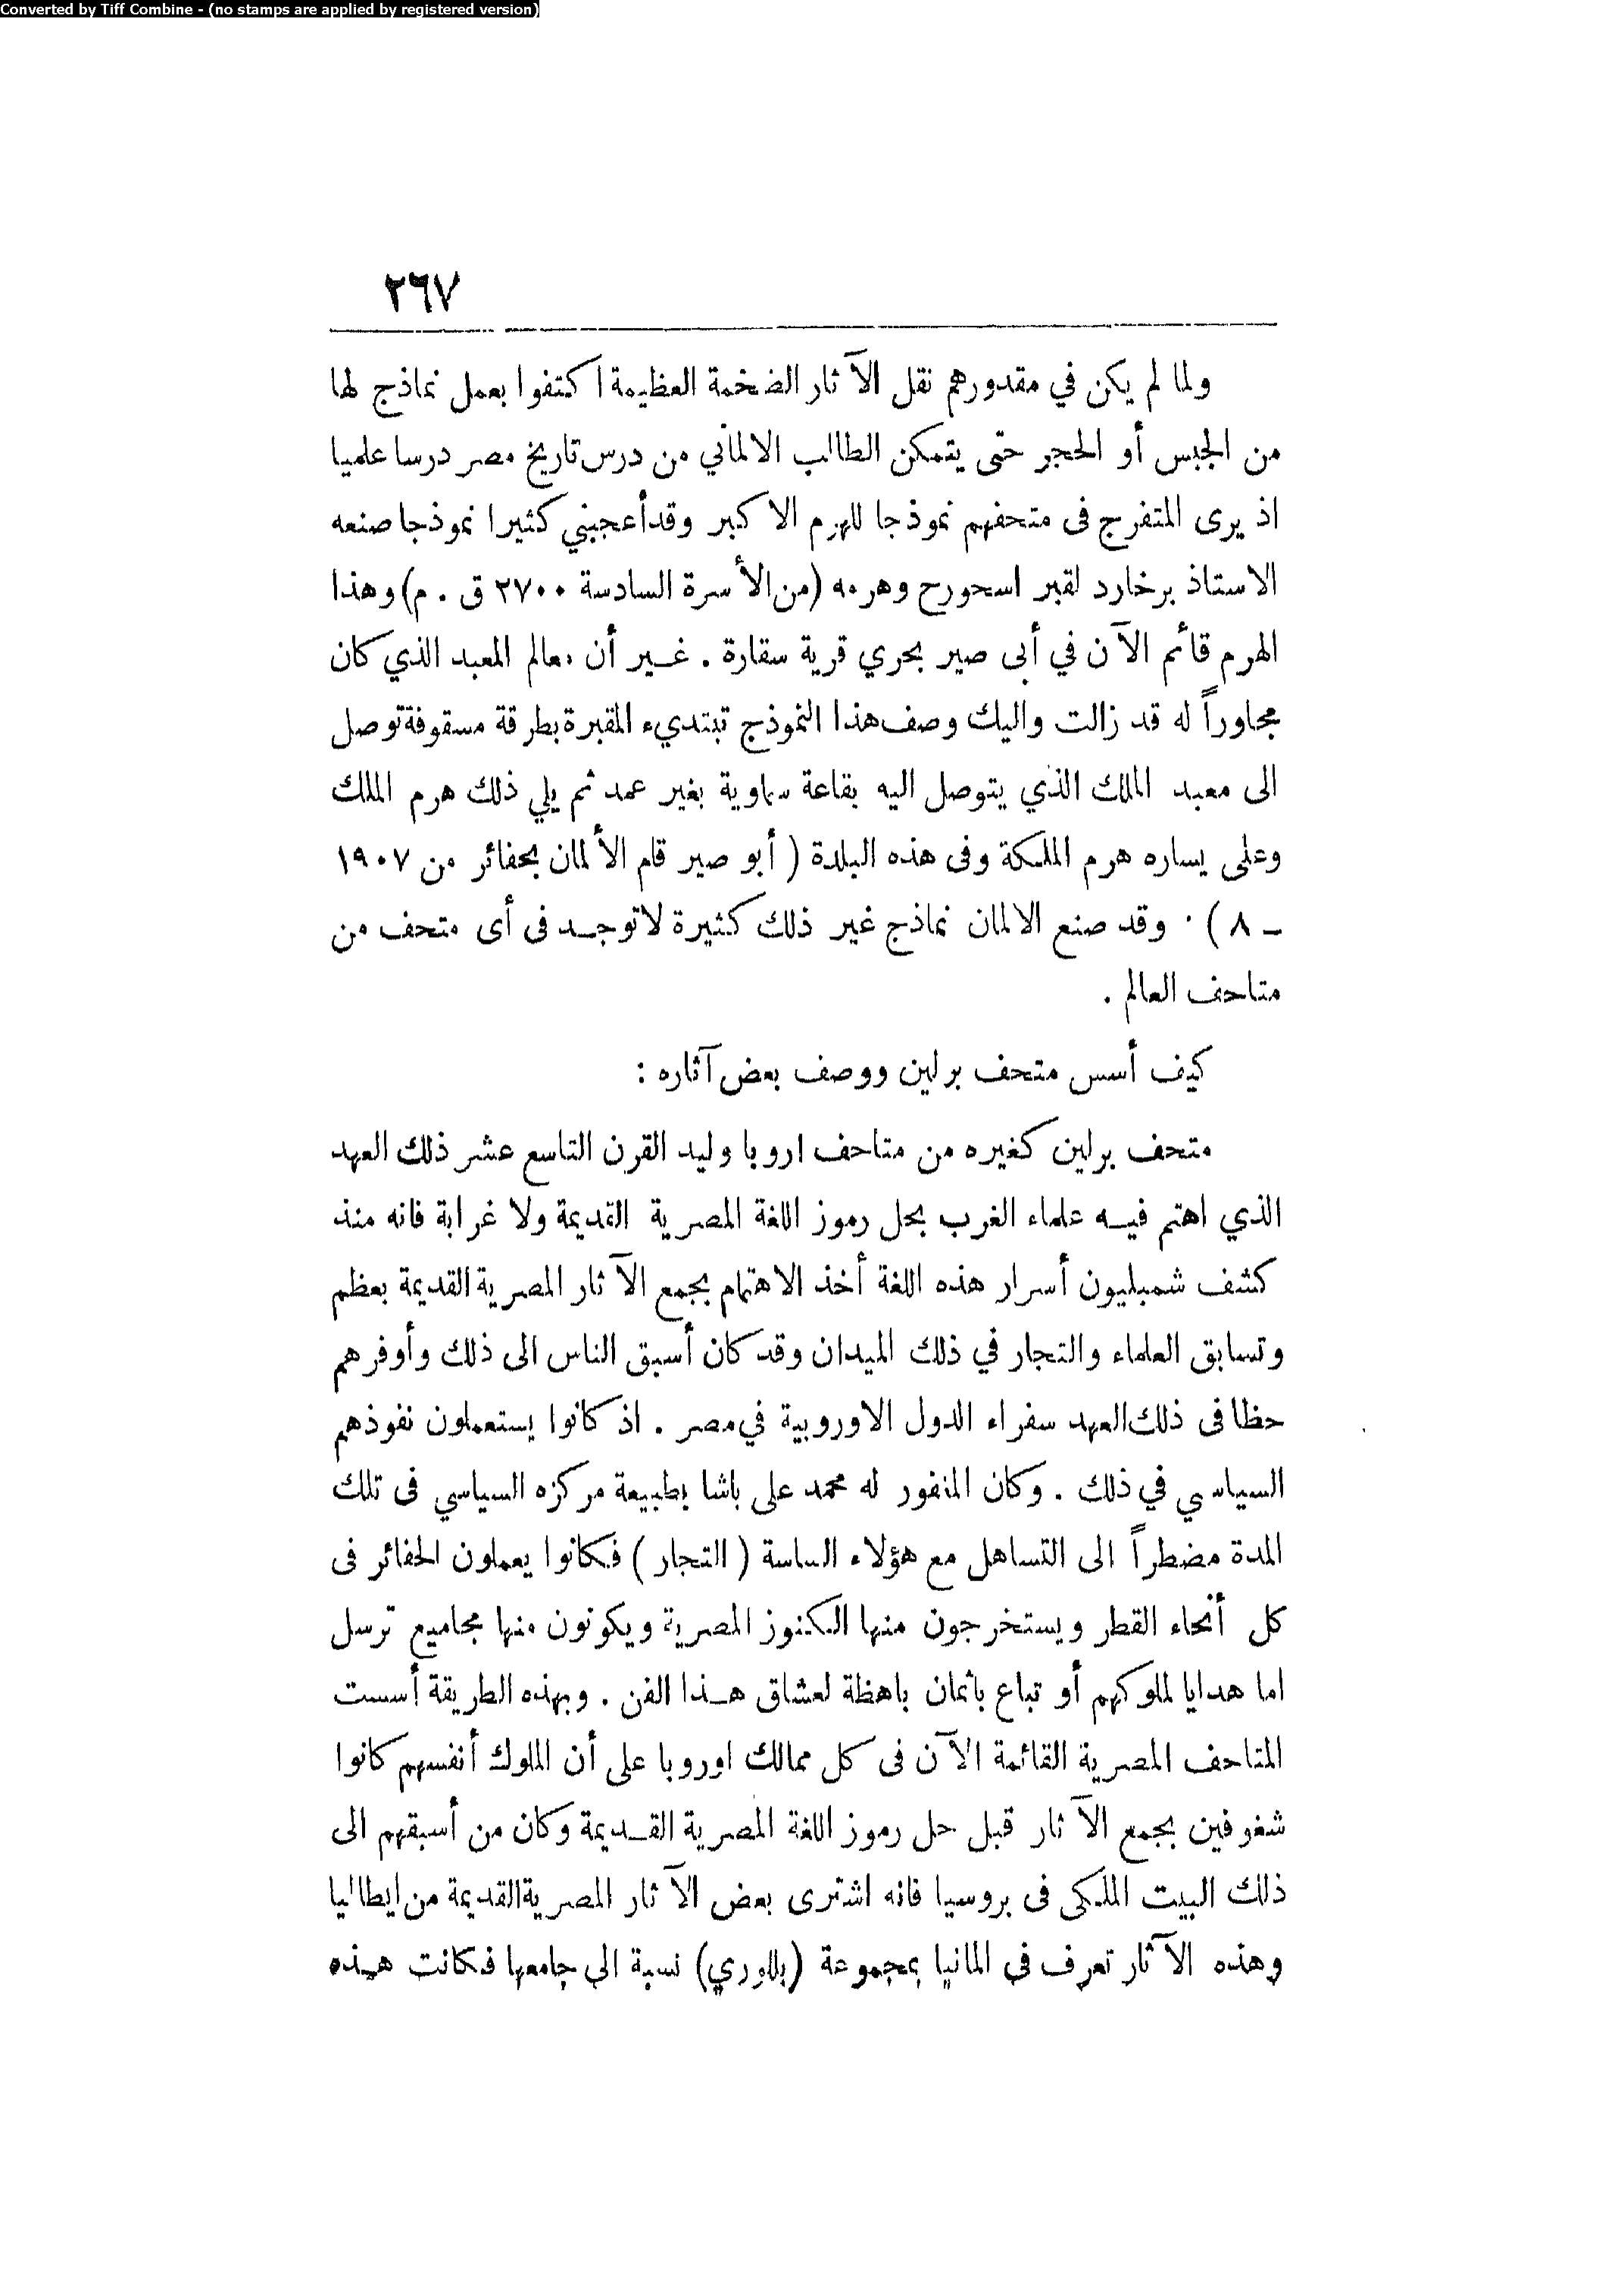 Converted by Tiff Combine - (no stamps are applied by registered version)
٢٦٧
ولما لم يكن في مقدورهم نقل الآثار الضخمة العظيمة اكتفوا بعمل نماذج لها
من الجبس أو الحجر حتى يتمكن الطالب الالماني من درس تاريخ مصر درسا علميا
اذ يرى المتفرج فى متحفهم نموذجا للهرم الاكبر وقد أعجبني كثيرا نموذجا صنعه
الاستاذ برخارد لقبر اسحورح وهرمه (من الأسرة السادسة ٢٧٠٠ ق . م) وهذا
الهرم قائم الآن في أبى صير بحري قرية سقارة . غير أن معالم المعبد الذي كان
مجاوراً له قد زالت واليك وصف هذا النموذج تبتديء المقبرة بطرقة مسقوفة توصل
الى معبد الملك الذي يتوصل اليه بقاعة سماوية بغير عمد ثم يلي ذلك هرم الملك
وعلى يساره هرم الملكة وفى هذه البلدة ( أبو صير قام الألمان بحفائر من ١٩٠٧
ـ ٨ ) . وقد صنع الالمان نماذج غير ذلك كثيرة لاتوجد فى أى متحف من
متاحف العالم .
كيف أسس متحف برلين ووصف بعض آثاره :
متحف برلين كغيره من متاحف اروبا وليد القرن التاسع عشر ذلك العهد
الذي اهتم فيه علماء الغرب بحل رموز اللغة المصرية القديمة ولا غرابة فانه منذ
كشف شمبليون أسرار هذه اللغة أخذ الاهتمام بجمع الآثار المصرية القديمة يعظم
وتسابق العلماء والتجار في ذلك الميدان وقد كان أسبق الناس الى ذلك وأوفرهم
حظا فى ذلك العهد سفراء الدول الاوروبية في مصر . اذ كانوا يستعملون نفوذهم
السياسي في ذلك . وكان المغفور له محمد على باشا بطبيعة مركزه السياسي فى تلك
المدة مضطراً الى التساهل مع هؤلاء الساسة ( التجار ) فكانوا يعملون الحفائر فى
كل أنحاء القطر ويستخرجون منها الكنوز المصرية ويكونون منها مجاميع ترسل
اما هدايا لملوكهم أو تباع باثمان باهظة لعشاق هذا الفن . وبهذه الطريقة أسست
المتاحف المصرية القائمة الآن فى كل ممالك اوروبا على أن الملوك أنفسهم كانوا
شغوفين بجمع الآثار قبل حل رموز اللغة المصرية القديمة وكان من أسبقهم الى
ذلك البيت الملكى فى بروسيا فانه اشترى بعض الآثار المصرية القديمة من ايطاليا
وهذه الآثار تعرف في المانيا بمجموعة (بللوري) نسبة الى جامعها فكانت هذه